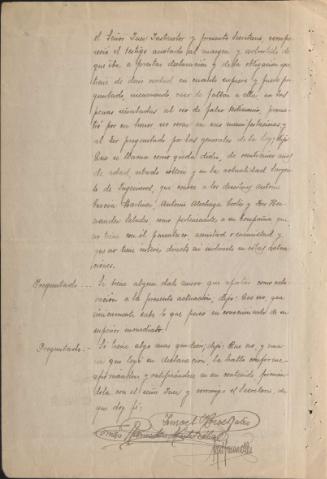 el Señor Juez Instructor y presente Secretario compa-
reció el testigo anotado al margen y advertido de
que iba a prestar declaración y de la obligación que
tiene de decir verdad en cuanto supiere y fuere pre-
guntado, incurriendo caso de faltar a ella en las
penas señaladas al reo de falso testimonio, prome-
tió por su honor ser veraz en sus manifestaciones y
al ser preguntado por las generales de la ley, dijo:
Que se llama como queda dicho, de veintinueve años
de edad, estado soltero y en la actualidad Sargen-
to de Ingenieros, que conoce a los
García Antonio y José Her-
nández como pertenecientes a su Compañía que
no tiene con él parentesco amistad o enemistad y
que no tiene interés directo ni indirecto en estas
ciones.
Preguntado.- Si tiene algun dato nuevo que aportar como
ración a la presente actuación, dijo: Que no, que
únicamente sabe lo que puso en conocimiento de su
superior inmediato.
Preguntado.- Si tiene algo mas que decir, dijo: Que no, y una
vez que leyó su declaración, la halla conforme
afirmandose y ratificándose en su contenido firmán-
dola con el señor Juez y conmigo el Secretario, de
que doy fé.